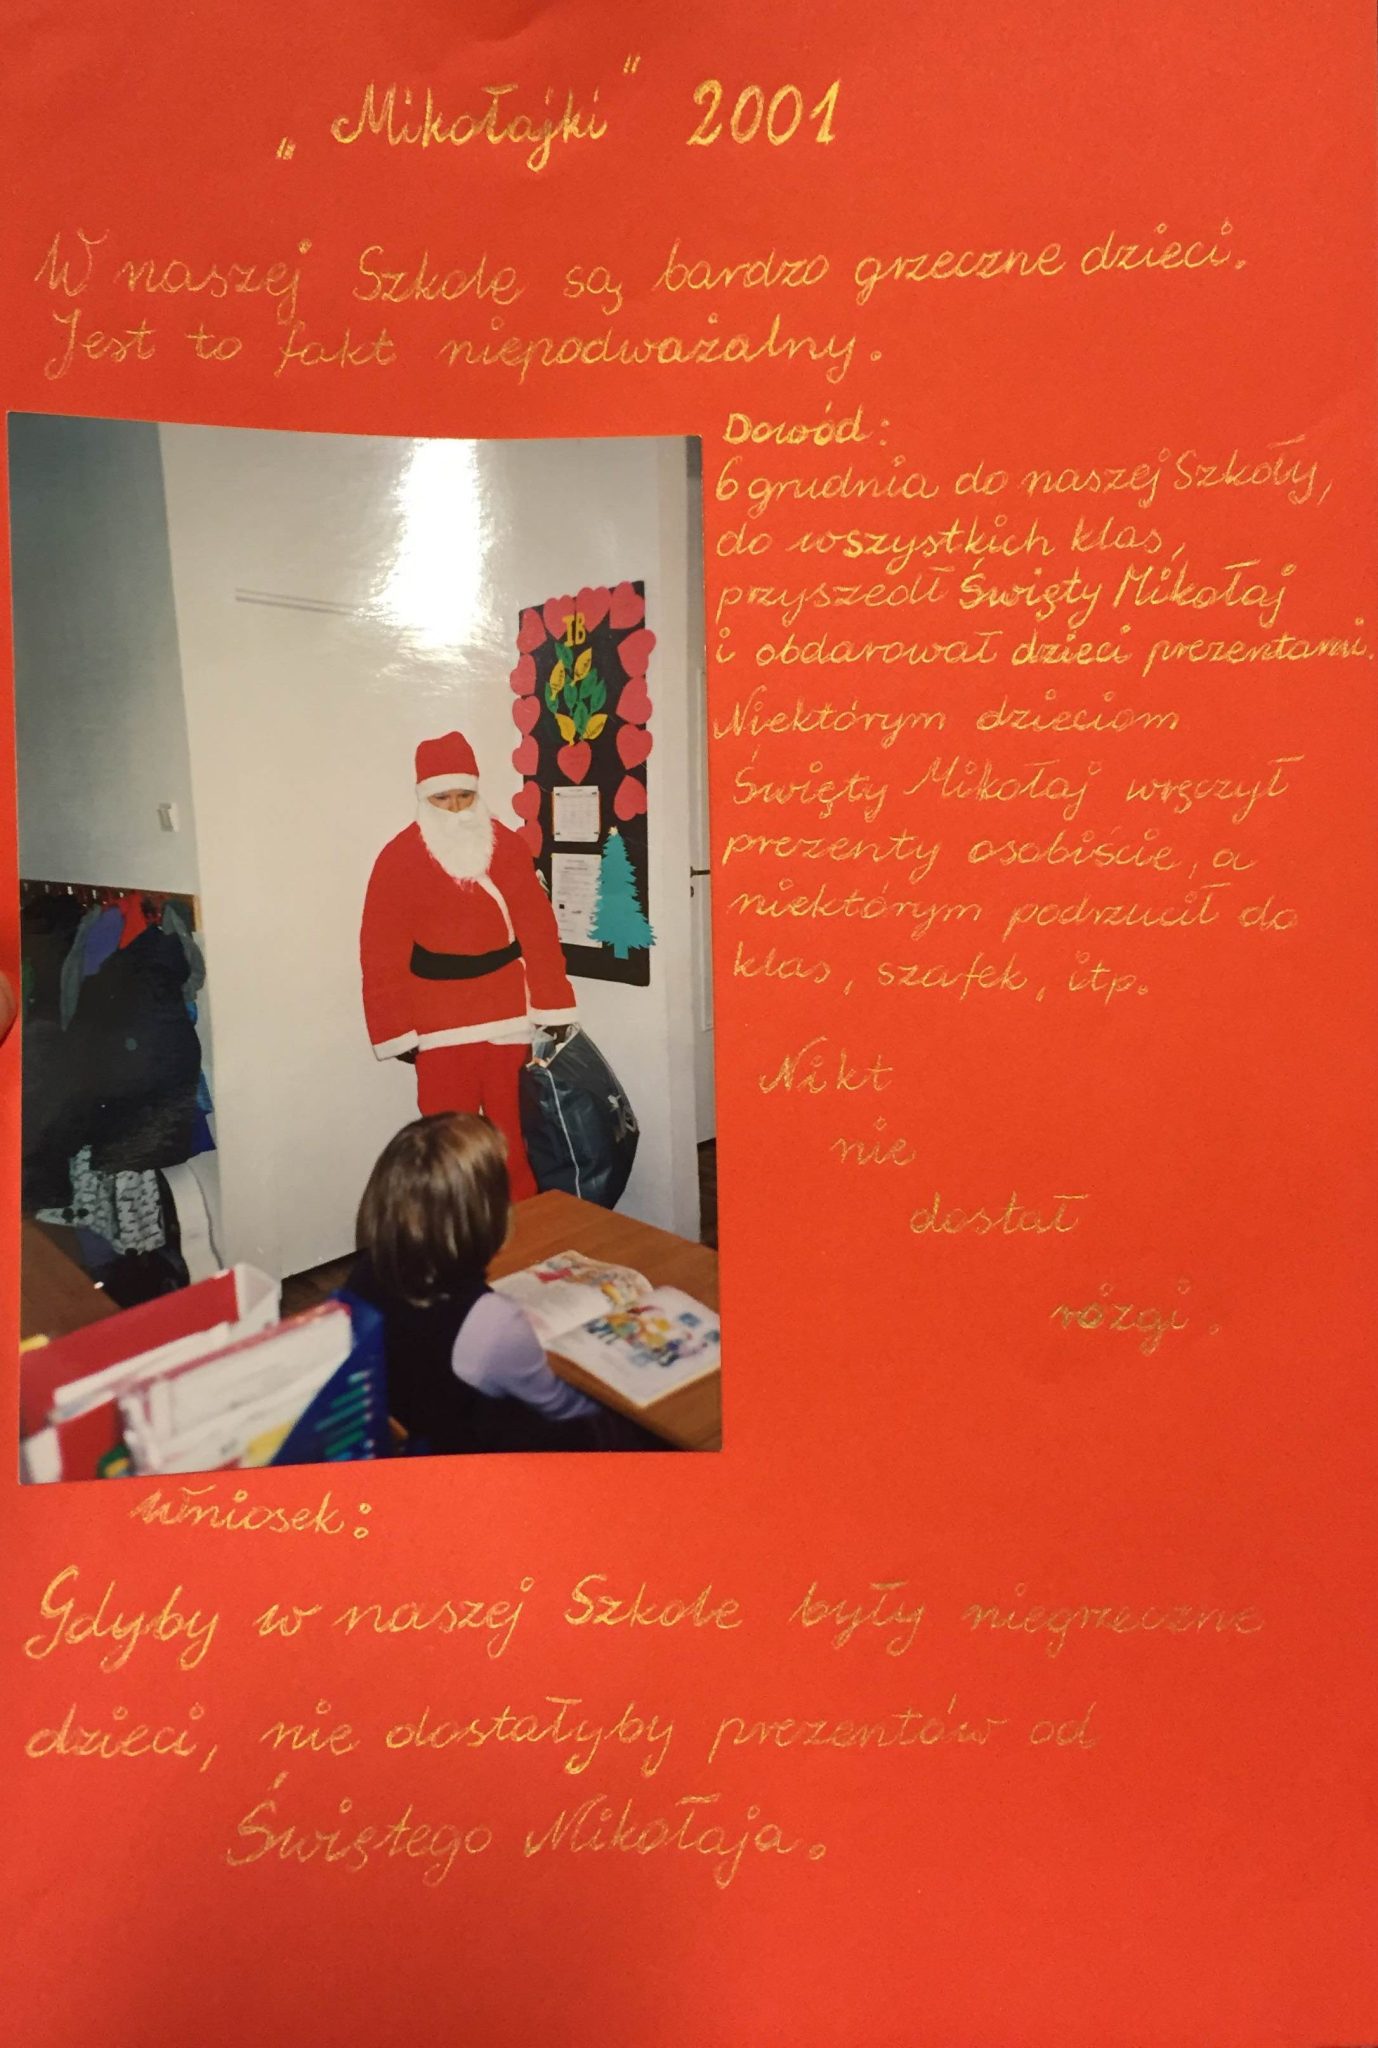 „Mikołajki" 2001
W naszej Szkole są bardzo grzeczne dzieci.
Jest to fakt niepodważalny.
Dowód:
6 grudnia do naszej Szkoły,
do wszystkich klas,
przyszedł Święty Mikołaj
i obdarował dzieci prezentami.
Niektórym dzieciom
Święty Mikołaj wręczył
prezenty osobiście, a
niektórym podrzucił do
klas, szafek, itp.
Nikt
nie
dostał
rózgi.
IB
Wniosek:
Gdyby w naszej Szkole były niegrzeczne
dzieci, nie dostałyby prezentów od
Świętego Mikołaja.